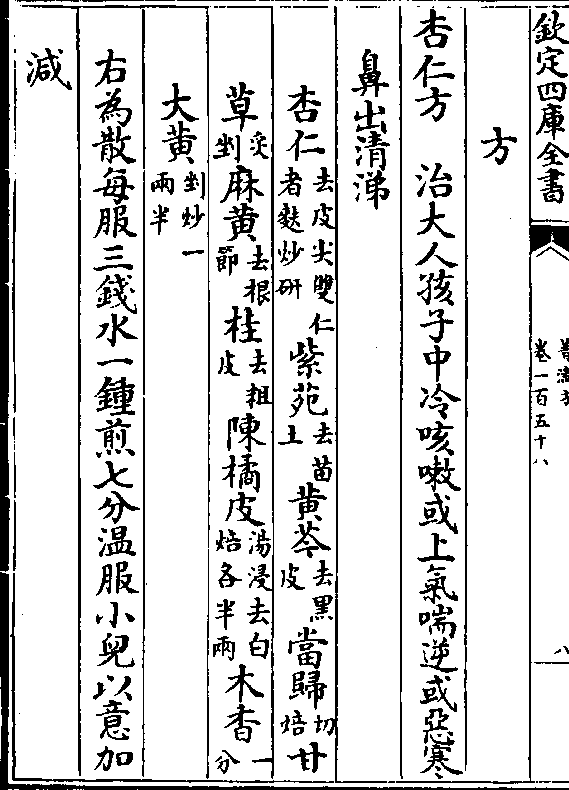 欽定四庫全書
卷一百五十八
八
方
杏仁方　治大人孩子中冷咳嗽或上氣喘逆或惡寒
鼻出清涕
杏仁去皮尖雙仁者麩炒研　紫苑去苗土　黄芩去黑皮　當歸切焙　甘
草炙剉　麻黄去根節　桂去粗皮　陳橘皮湯浸去白焙各半兩　木香一分
大黄剉炒一兩半
右為散每服三錢水一鍾煎七分温服小兒以意加
減